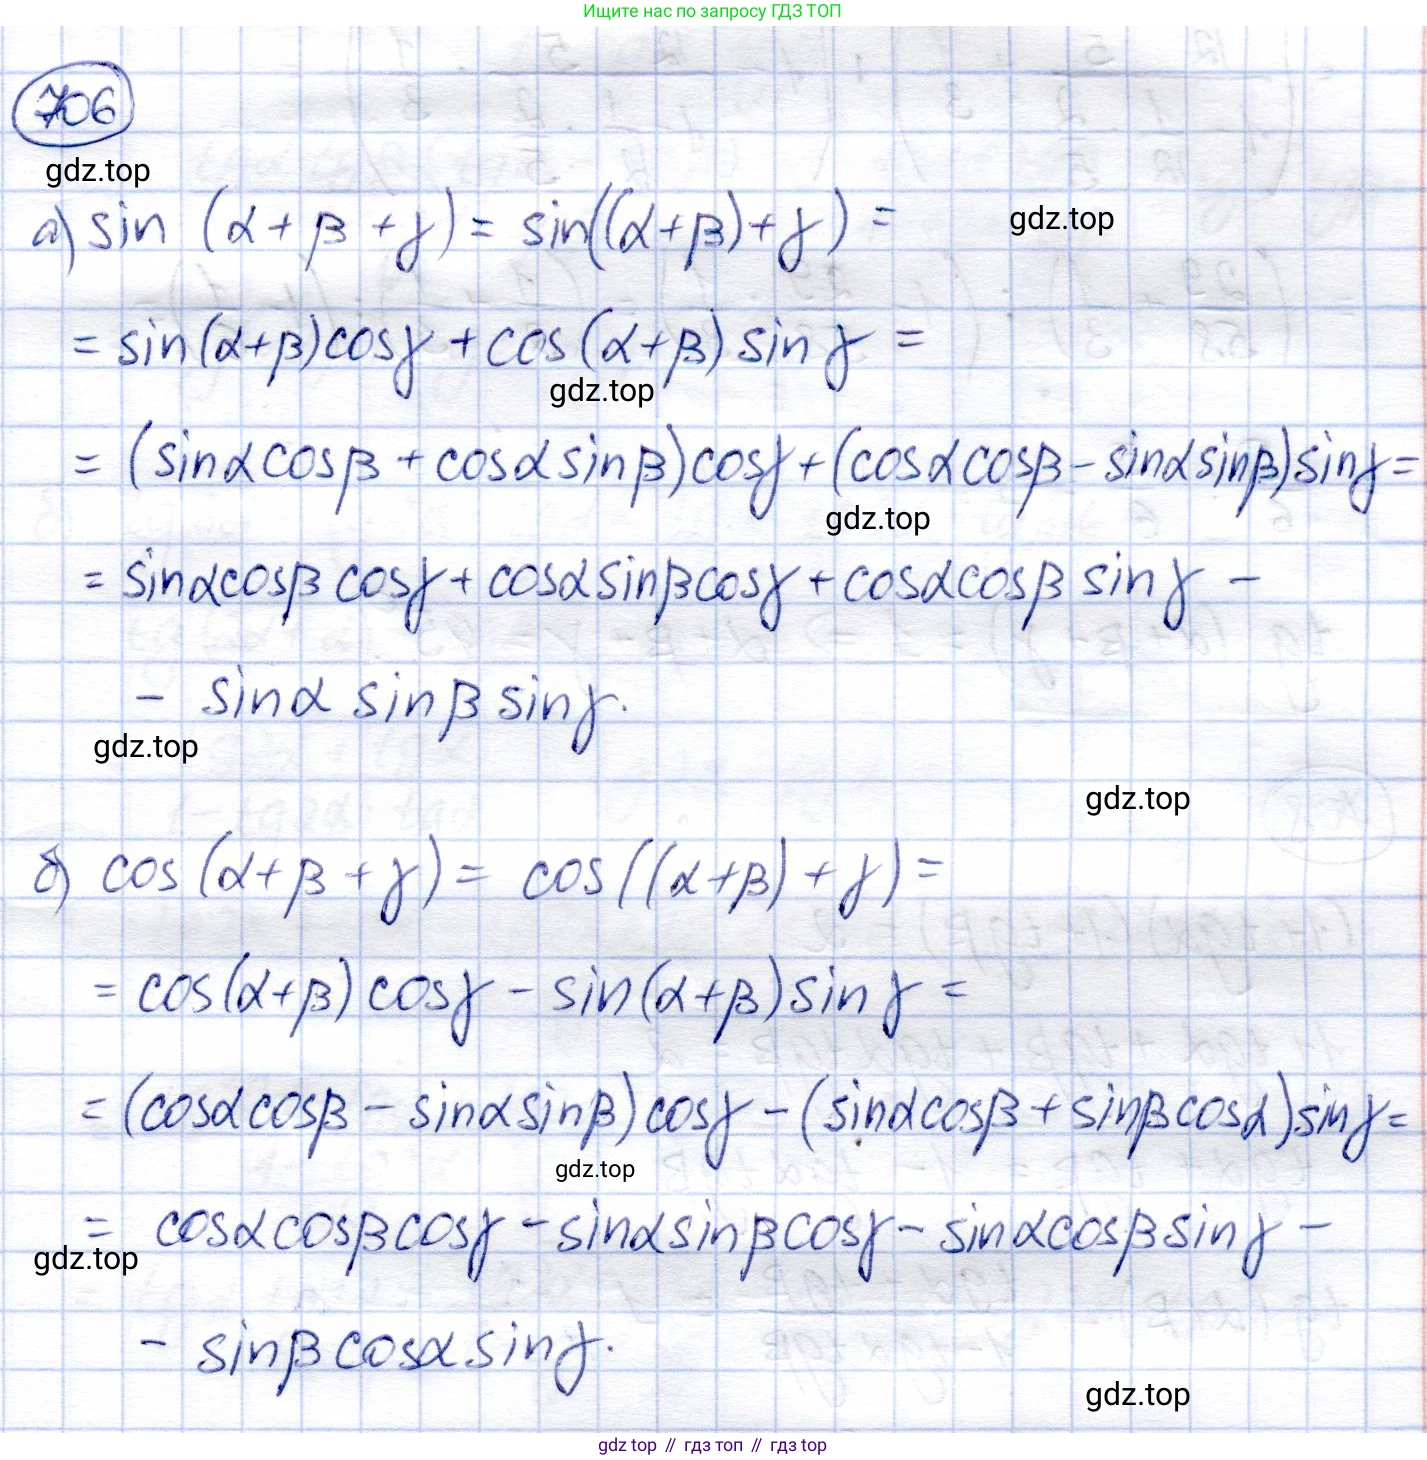 Ищите нас по запросу ГДЗ ТОП
706
gdz.top
а) sin (α + β + γ) = sin((α+β)+γ) =
gdz.top
= sin(α+β)cosγ + cos(α+β) sinγ =
gdz.top
= (sinα cosβ + cosα sinβ)cosγ + (cosα cosβ - sinα sinβ)sinγ =
gdz.top
= sinα cosβ cosγ + cosα sinβ cosγ + cosα cosβ sinγ -
- sinα sinβ sinγ.
gdz.top
gdz.top
б) cos(α+β+γ) = cos((α+β)+γ) =
= cos(α+β) cosγ - sin(α+β) sinγ =
= (cosα cosβ - sinα sinβ) cosγ - (sinα cosβ + sinβ cosα) sinγ =
gdz.top
= cosα cosβ cosγ - sinα sinβ cosγ - sinα cosβ sinγ -
gdz.top
- sinβ cosα sinγ.
gdz.top
gdz top // гдз топ // гдз top